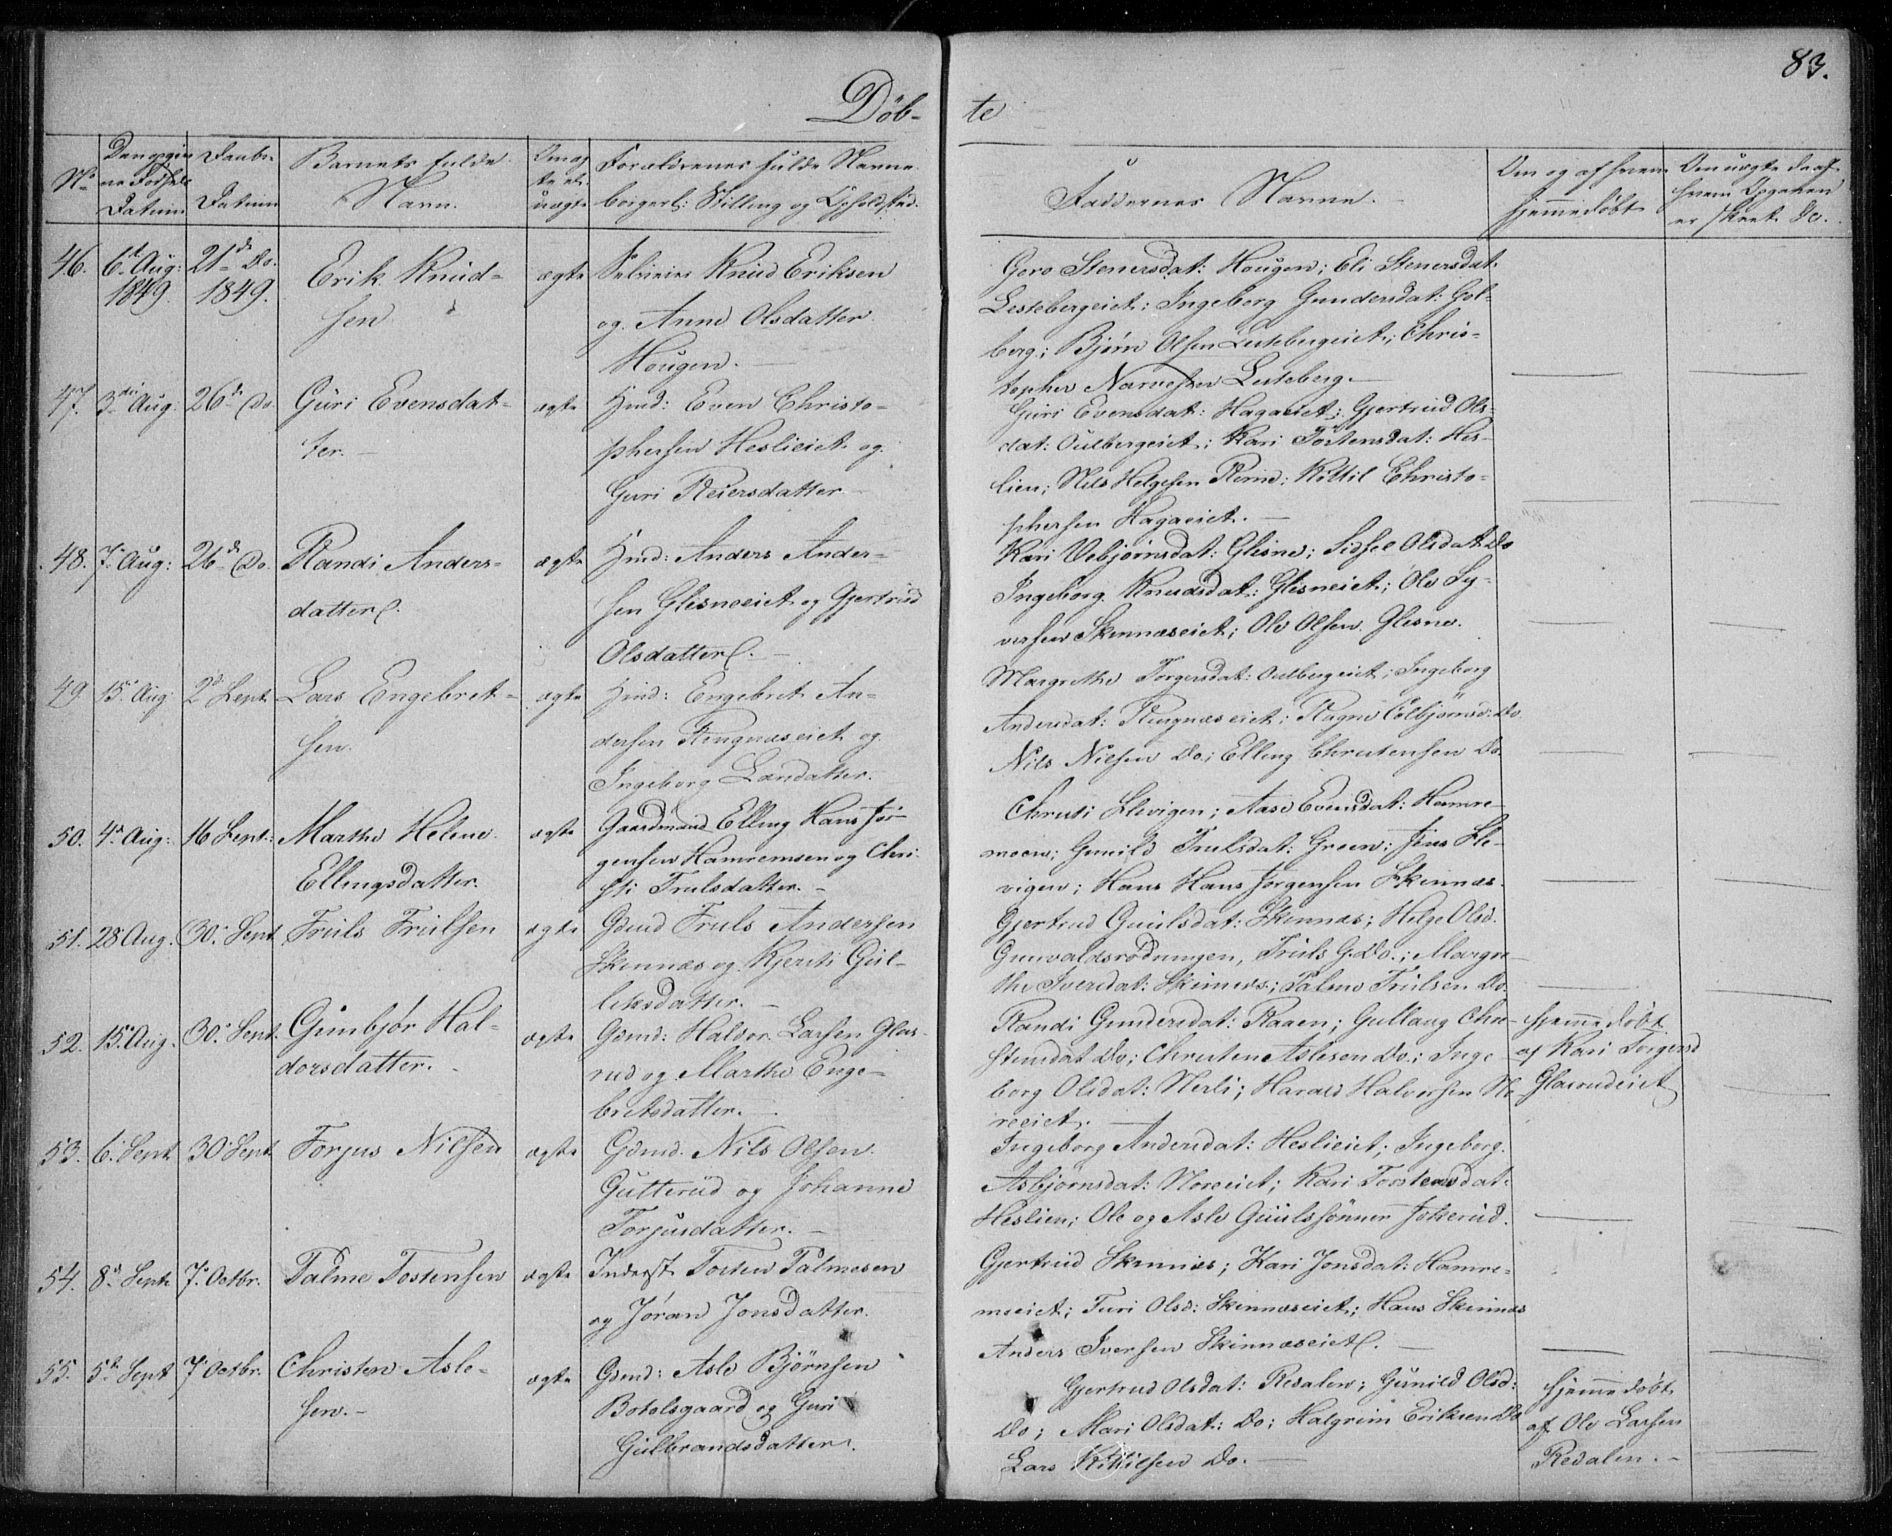 83.
Döb- te
No
Den opgiv
ne Fødsels
Datum
Daabs-
Datum
Barnets fulde
Navn.
Om æg
te el.
uægte
Forældrenes fulde Navne
borgerl: Stilling og Opholdsted.
Faddernes Navne.
Om og af hvem
hjemmedöbt
Om uægte da af
hvem Opgaven
er skeet. Do.
46. 6te Aug: 1849. 21de Do. 1849.
Erik Knud-
sen
ægte
Knud Eriksen
og Anne Olsdatter
Hougen.
Goro Stenersdat: Hougen; Eli Stenersdat:
Lestebergeiet; Ingeborg Gundersdat: Gol-
berg; Bjørn Olsen Lestebergeiet; Chris-
topher Narvesen Lesteberg.
47. 3die Aug: 26de Do.
Guri Evensdat-
ter.
ægte
Hmd: Even Christo-
phersen Heslieiet og
Guri Reiersdatter
Guri Evensdat: Hagaeiet; Gjertrud Ols-
dat: Oulbergeiet; Kari Tostensdat: Hes-
lien; Nils Helgesen; Kittil Christo-
phersen Hagaeiet.
48. 7. Aug: 26de Do.
Randi Anders-
datter.
ægte
Hmd: Anders Ander-
sen Glesneeiet og Gjertrud
Olsdatter.
Kari Vebjørnsdat: Glesne; Sidsel Olsdat: Do
Ingeborg Knudsdat: Glesneeiet; Ole Sy-
versen Skinnæseiet; Ole Olsen Glesne.
49. 15. Aug: 2d Sept.
Lars Engebret-
sen.
ægte
Hmd: Engebret An-
dersen Ringnæseiet og
Ingeborg Larsdatter.
Margrethe Torgersdat: Oulbergeiet; Ingeborg
Andersdat: Ringnæseiet; Ragne Colbjørnsd: Do
Nils Nielsen Do; Elling Christensen Do.
50. 4d Aug: 16 Sept:
Marthe Helene
Ellingsdatter.
ægte
Gaardmand Elling Hans Jør-
gensen Hamremoen og Chri-
sti Trulsdatter.
Christi Slevigen; Aase Evensdat: Hamre-
moen; Gunild Trulsdat: Green; Jens Sle-
vigen; Hans Hans Jørgensen Skinnæs.
51. 28 Aug. 30. Sept.
Truls Trulsen
ægte
Gdmd Truls Andersen
Skinnæs og Kjersti Gul-
liksdatter.
Gjertrud Guulsdat: Skinnæs; Helge Olsd:
Gunvaldsrødningen, Truls G. Do.; Margre-
the Iversdat: Skinnæs; Palme Trulsen Do.
52. 15. Aug. 30. Sept.
Gunbjør Hal-
dorsdatter.
ægte
Gdmd: Haldor Larsen Glas-
rud og Marthe Enge-
bretsdatter.
Randi Gundersdat: Raaen; Gullaug Chri-
stensdat Do; Christen Aslesen Do.; Inge-
borg Olsdat: Nerli; Harald Halvorsen No-
reeiet.
hjemmedöbt
af Kari Torgersd
Glasrudeiet
53. 6. Sept. 30 Sept
Torjus Nilsen
ægte
Gdmd. Nils Olsen
Gutterud og Johanne
Torjusdatter.
Ingeborg Andersdat: Heslieiet; Ingeborg
Asbjørnsdat: Noreeiet; Kari Torstensdat:
Heslien; Ole og Asle Guulssønner Jokerud.
54. 8d Sept. 7. Octbr.
Palme Tostensen
ægte
Inderst Tosten Palmesen
og Jøran Jonsdatter.
Gjertrud Skinnæs; Kari Jonsdat: Hamre-
moeiet; Turi Olsd: Skinnæseiet; Hans Skinnæs
Anders Iversen Skinnæseiet.
55. 5te Sept 7. Octbr.
Christen Asle-
sen.
ægte
Gdmd: Asle Bjørnsen
Botolsgaard og Guri
Gulbrandsdatter.
Gjertrud Olsdat: Redalen; Gunild Olsd:
Do; Mari Olsdat: Do; Halgrim Eriksen Do
Lars Kittilsen Do.
hjemmedöbt
af Ole Larsen
Redalen.